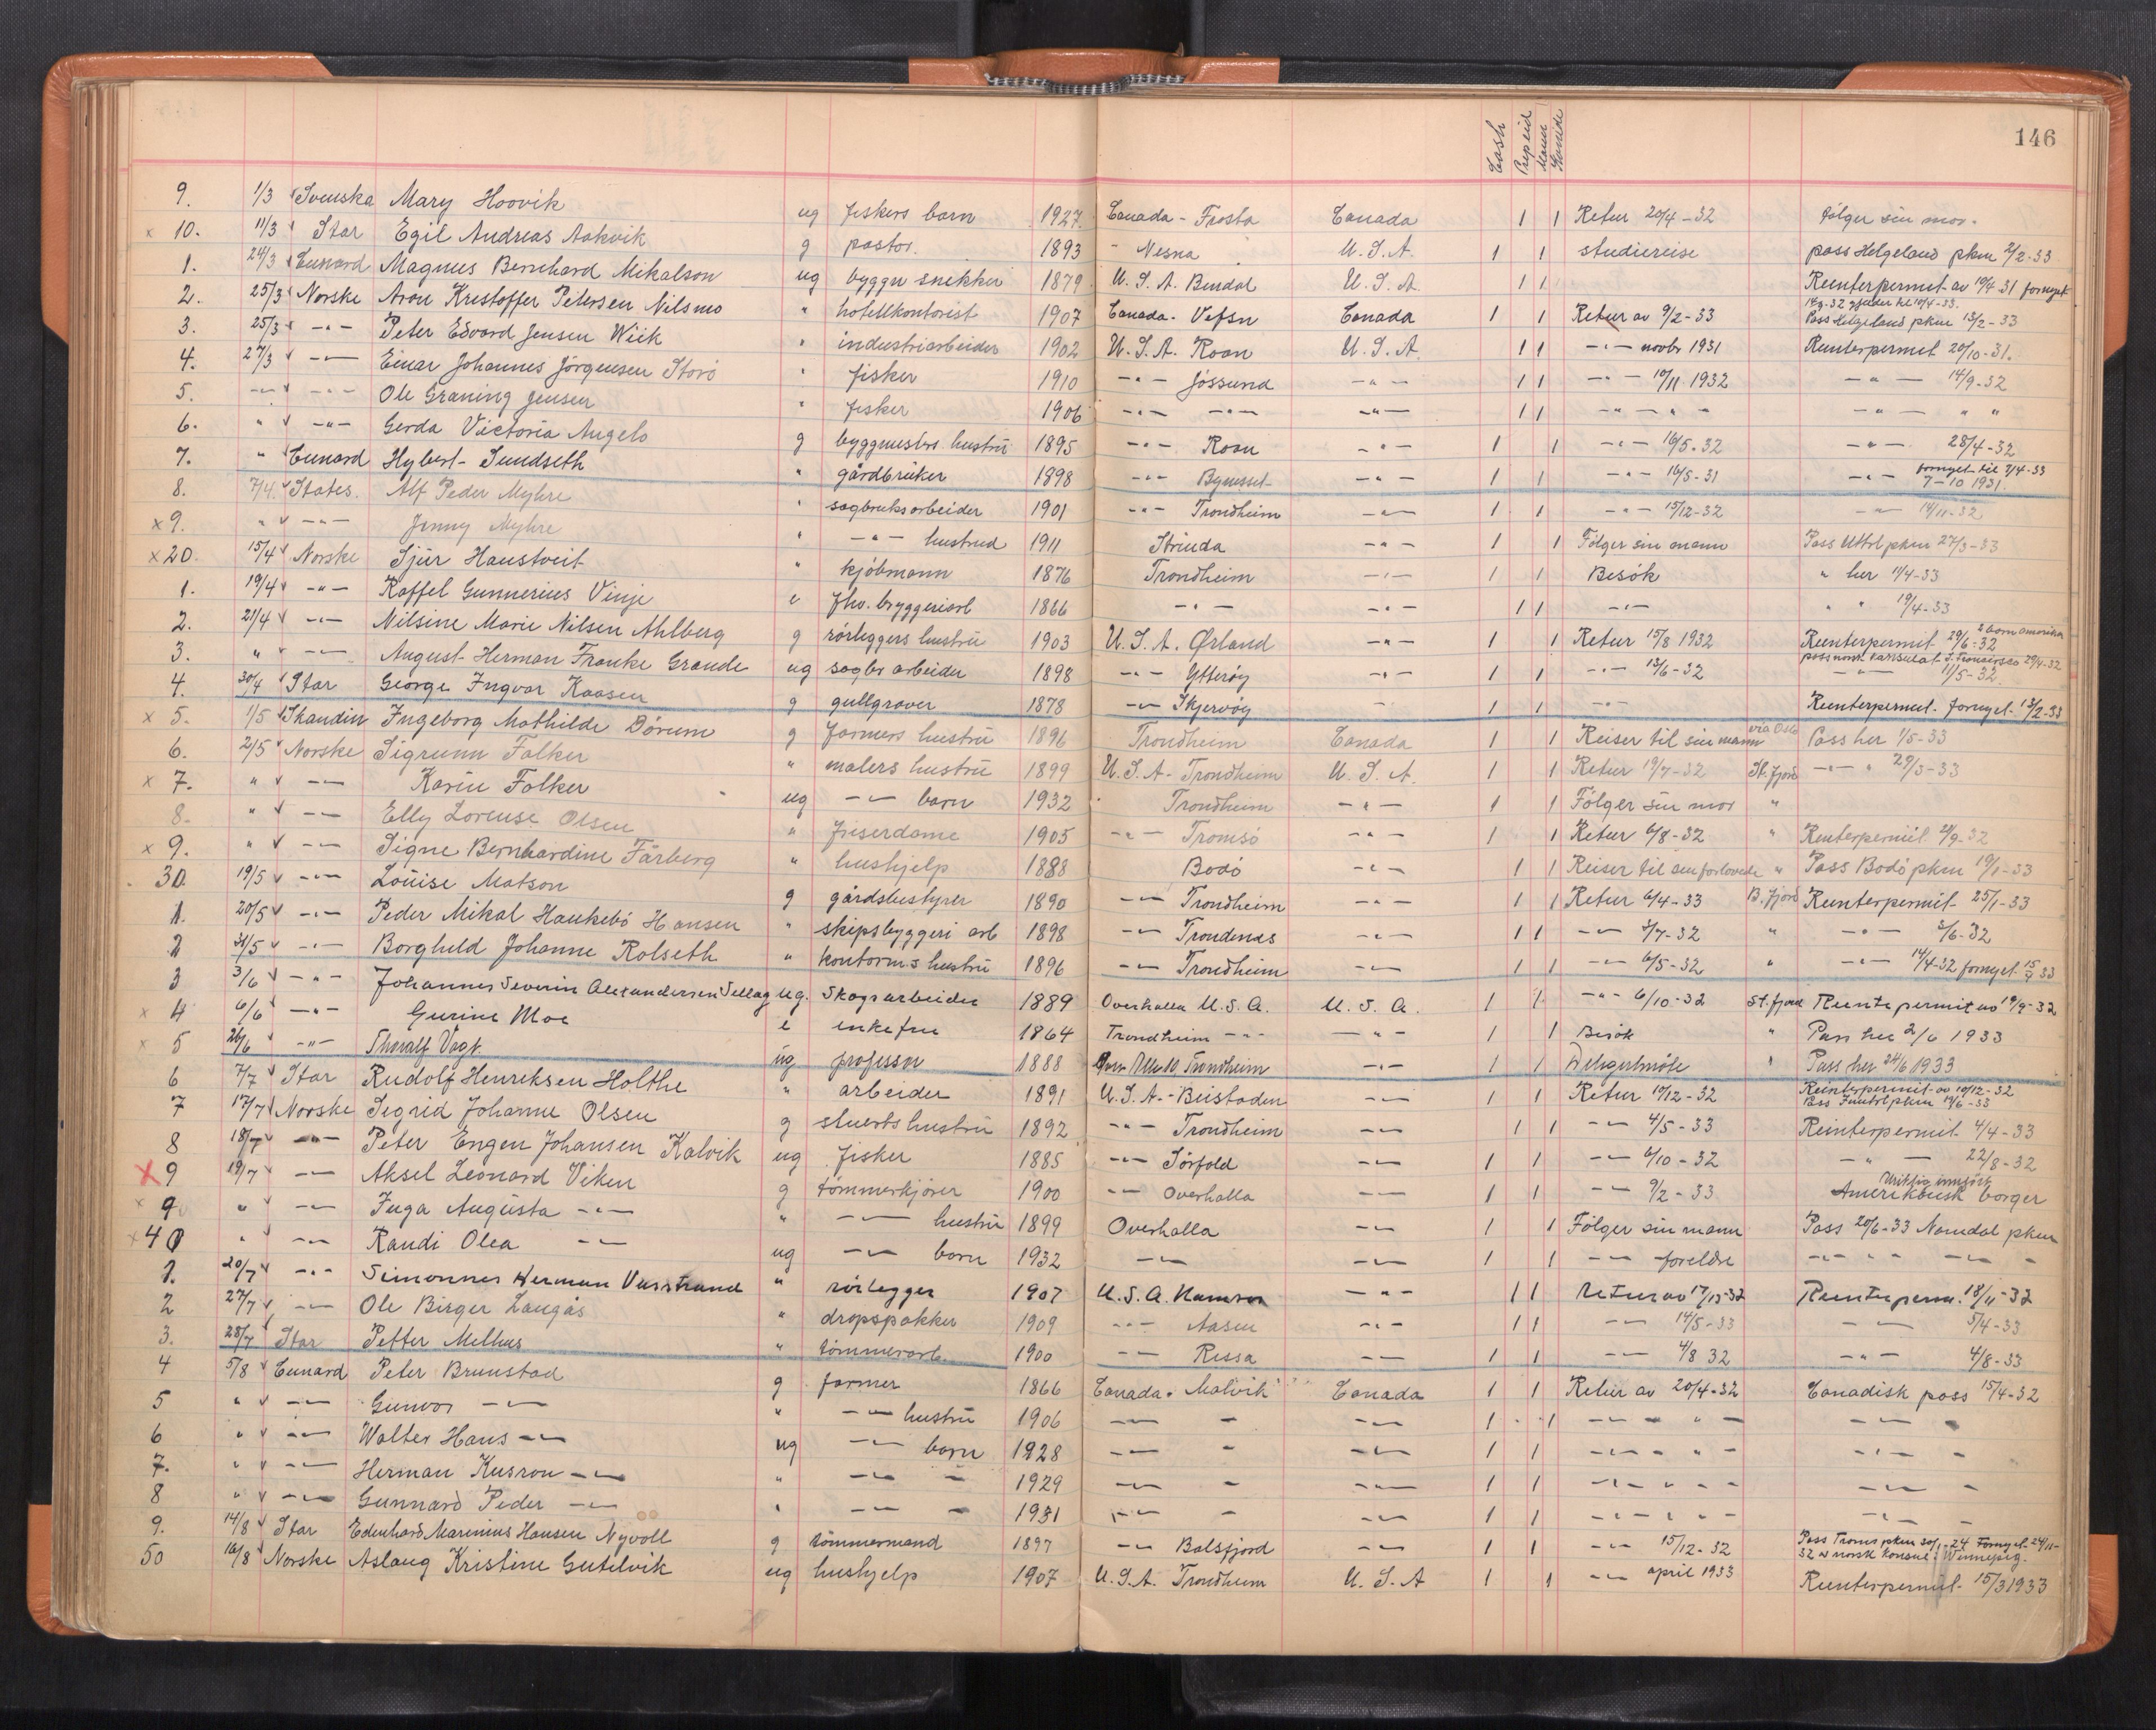 Cash Prepeid Mænd Kvinde
146
9. 1/3 Svenska Mary Hoovik ug fiskers barn 1927 Canada - Frosta Canada 1 1 Retur 20/4-32 følger sin mor.
x 10. 11/3 Star Egil Andreas Aakvik g pastor. 1893 " Nesna U.S.A. 1 1 studiereise pass Helgeland pkm 2/2-33
1. 24/3 Cunard Magnus Bernhard Mikalson ug byggn snekker 1879 U.S.A. Bindal U.S.A. 1 1 Reenterpermit av 10/4 31 fornyet
14/9-32 gjelder til 10/4-33.
2. 25/3 Norske Aron Kristoffer Petersen Nilsmo " hotellkontorist 1907 Canada - Vefsn Canada 1 1 Retur av 9/2-33 Pass Helgeland pkm 13/2-33
3. 25/3 -"- Peter Edvard Jensen Wiik " industriarbeider 1902 U.S.A. Roan U.S.A. 1 1 -"- novbr 1931 Reenterpermit 20/10-31.
4. 27/3 -"- Einar Johannes Jörgensen Storö " fisker 1910 -"- Jössund -"- 1 1 -"- 10/11 1932 -"- 14/9-32
5. -"- -"- Ole Graning Jensen " fisker 1906 -"- -"- -"- 1 1 -"- " " -"- " "
6. " -"- Gerda Victoria Angelo g byggmesters hustru 1895 -"- Roan -"- 1 1 -"- 16/5-32 -"- 28/4-32
7. " Cunard Hybert Sundseth " gårdbruker 1898 -"- Byneset -"- 1 1 -"- 16/5-31 -"- fornyet til 7/4-33
7-10 1931.
8. 7/4 States. Alf Peder Myhre " sagbruksarbeider 1901 -"- Trondheim -"- 1 1 -"- 15/12-32 -"- 14/11-32
x 9. " -"- Jenny Myhre " -"- hustrud 1911 Strinda -"- 1 1 Følger sin mann Pass Uttrl pkm 27/3-33
x 20. 15/4 Norske Sjur Haustveit " kjöbmann 1876 Trondheim -"- 1 1 Besök " her 11/4-33
1. 19/4 -"- Raffel Gunnerius Vinje e fhv. bryggeriarb 1866 -"- -"- 1 1 -"- " " 19/4-33
2. 21/4 -"- Nilsine Marie Nilsen Ahlberg g rörleggers hustru 1903 U.S.A. Ørland -"- 1 1 Retur 15/8 1932 Reenterpermit 29/6-32 2 barn amerika
3. " -"- August Herman Franke Grande ug sagbr arbeider 1898 -"- Ytterøy -"- 1 1 -"- 13/6-32 pass norsk konsulat S. Francisco 29/4-32
-"- 11/5-32.
4. 30/4 Star George Ingvar Kaasen g gullgraver 1878 -"- Skjervöy - 1 1 -"- Reenterpermit fornyet 13/2-33
x 5. 1/5 Skandin Ingeborg Mathilde Dörum g farmers hustru 1896 Trondheim Canada 1 1 Reiser til sin mann via Oslo Pass her 1/5-33
6. 2/5 Norske Sigrunn Falker " malers hustru 1899 U.S.A - Trondheim U.S.A. 1 1 Retur 19/7-32 St. fjord -"- " 29/3-33
x 7. " -"- Karin Falker ug -"- barn 1932 Trondheim -"- 1 1 Følger sin mor "
8. " -"- Elly Lorense Olsen " friserdame 1905 -"- Tromsö -"- 1 1 Retur 6/8-32 " Reenterpermit 2/9-32
x 9. " -"- Signe Bernhardine Färberg " hushjelp 1888 Bodö -"- 1 1 Reiser til sin forlovede " Pass Bodö pkm 19/1-33
30. 19/5 -"- Louise Matson g gårdsbestyrer 1890 -"- Trondheim -"- 1 1 Retur 6/4-33 B. fjord Reenterpermit 25/1-33
1. 20/5 -"- Peder Mikal Haukebö Hansen " skipsbyggeri arb 1898 -"- Trondenes -"- 1 1 -"- 2/7-32 " -"- 2/6-32
2 31/5 -"- Borghild Johanne Rolseth " kontorms hustru 1896 -"- Trondheim -"- 1 1 -"- 6/5-32 " -"- 14/4-32 fornyet 15/4 33
3 3/6 -"- Johannes Severin Alexandersen Sellæg ug. Skogsarbeider 1889 Overhalla U.S.A. U.S.A. 1 1 -"- 6/10-32 St. fjord Reenterpermit av 19/9-32
x 4 6/6 -"- Gurine Moe e enkefru 1864 Trondheim -"- -"- 1 1 Besök " Pass her 2/6 1933
x 5 26/6 -"- Thoralf Vogt. ug professor 1888 Trondheim -"- 1 1 " Pass her 24/6 1933
6 7/7 Star Rudolf Henriksen Holthe " arbeider 1891 U.S.A. - Beistaden -"- 1 1 Retur 10/12-32 Reinterpermit av 10/12-32
7 17/7 Norske Sigrid Johanne Olsen g stuerts hustru 1892 -"- Trondheim -"- 1 1 -"- 4/5-33 Reinterpermit 4/4-33
8 18/7 -"- Peter Engen Johansen Kalvik ug fisker 1885 -"- Sörfold -"- 1 1 -"- 6/10-32 -"- 22/8-32
x 9 19/7 -"- Aksel Leonard Viken g tömmerkjörer 1900 -"- Overhalla -"- 1 1 -"- 9/2-33 Uriktig innfört
Amerikansk borger
x 9 " -"- Inga Augusta -"- " -"- hustru 1899 Overhalla -"- 1 1 Følger sin mann Pass 20/6-33 Namdal pkm
x 40 " -"- Randi Olea -"- ug -"- barn 1932 -"- -"- 1 1 -"- foreldre -"- " " -"- -
1. 20/7 -"- Simonnes Herman Vasstrand " rörlegger 1907 U.S.A. Hamsor -"- 1 1 retur av 17/12-32 Reenterperm. 18/11-32
2 27/7 -"- Ole Birger Langås " dropspakker 1909 -"- Aasen -"- 1 1 -"- 14/5-33 -"- 5/4-33
3. 28/7 Star Petter Melhus " tömmerarb. 1900 -"- Rissa -"- 1 1 -"- 4/8 32 -"- 4/8-33
4 5/8 Cunard Peter Brunstad g farmer 1866 Canada - Malvik Canada 1 1 Retur av 20/4-32 Canadisk pass 15/4-32
5 " -"- Gunvor -"- " -"- hustru 1906 -"- - -"- 1 1 -"- - " - -"- -
6 " -"- Walter Hans -"- ug -"- barn 1928 -"- - -"- 1 1 -"- - " - -"- -
7. " -"- Herman Kusron -"- " -"- - 1929 -"- - -"- 1 1 -"- - " - -"- -
8 " -"- Gunnard Peder -"- " -"- - 1931 -"- - -"- 1 1 -"- - " - -"- -
9. 14/8 Star Edenhard Marinius Hansen Nyvoll g tömmermand 1897 -"- Balsfjord -"- 1 1 -"- 15/12-32 Pass Troms pkm 30/1-24 Fornyet 24/11-
32 av norsk konsul i Winnepeg.
50 16/8 Norske Aslaug Kristine Gutelvik ug hushjelp 1907 U.S.A. Trondheim U.S.A 1 1 -"- april 1933 Reenterpermit 15/3 1933